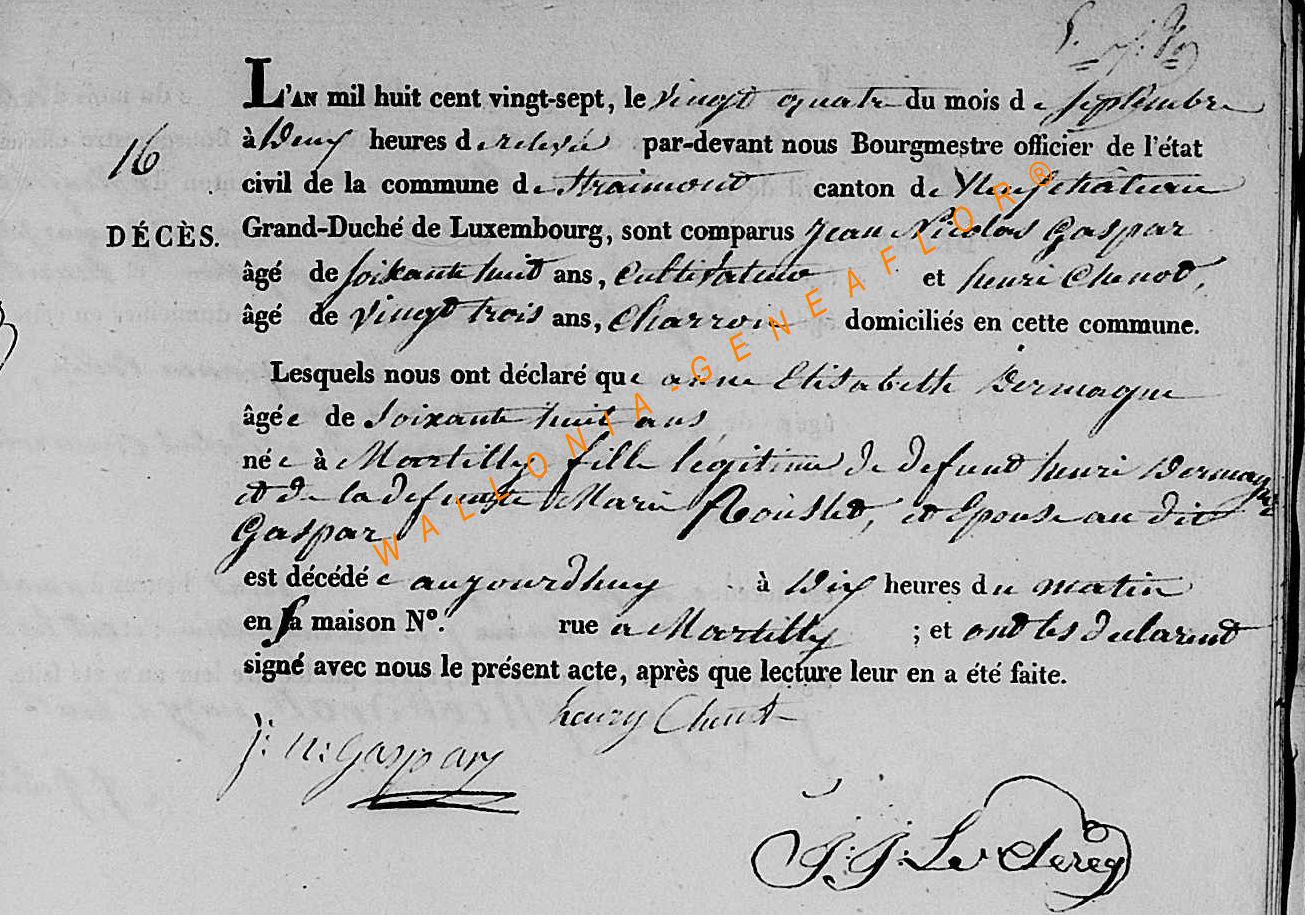 L'AN mil huit cent vingt-sept, le vingt quatre du mois de Septembre
16
à Deux heures de relevée par-devant nous Bourgmestre officier de l'état
civil de la commune de Straimont canton de Neufchateau
DÉCÈS.
Grand-Duché de Luxembourg, sont comparus Jean Nicolas Gaspar
âgé de soixante huit ans, Cultivateur et henri Chenot,
âgé de vingt trois ans, Charron domiciliés en cette commune.
Lesquels nous ont déclaré que anne Elisabeth Dermague
âgée de Soixante huit ans
née à Martilly fille légitime de defunt henri Dermague
et de la defunte Marie, et Epouse au dit
Gaspar
est décédée aujourdhuy à Dix heures du matin
en sa maison N°. rue a Martilly ; et ont les declarent
signé avec nous le présent acte, après que lecture leur en a été faite.
henry Chenot
j: n: Gaspary
J: J: Le Clereq
WALLONIA - GENEAFLOR®